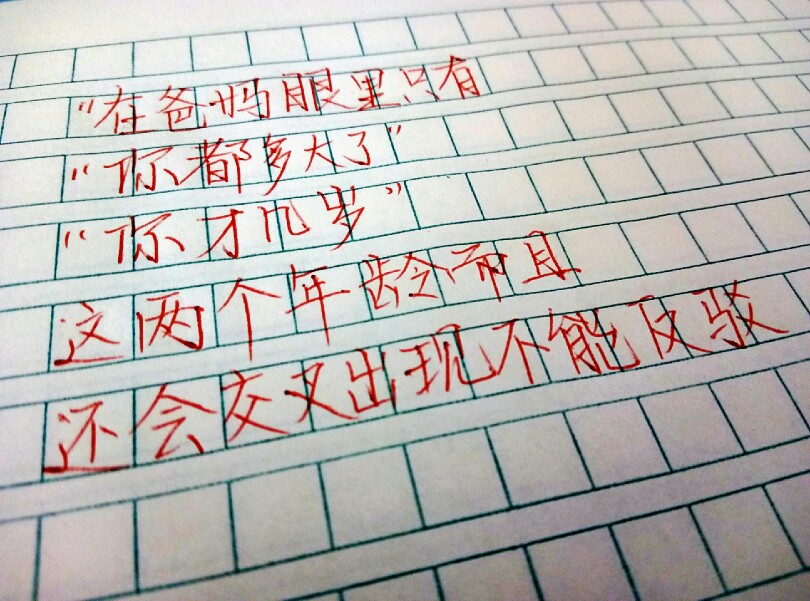 “在爸妈眼里只有
“你都多大了”
“你才几岁”
这两个年龄而且
还会交叉出现不能反驳